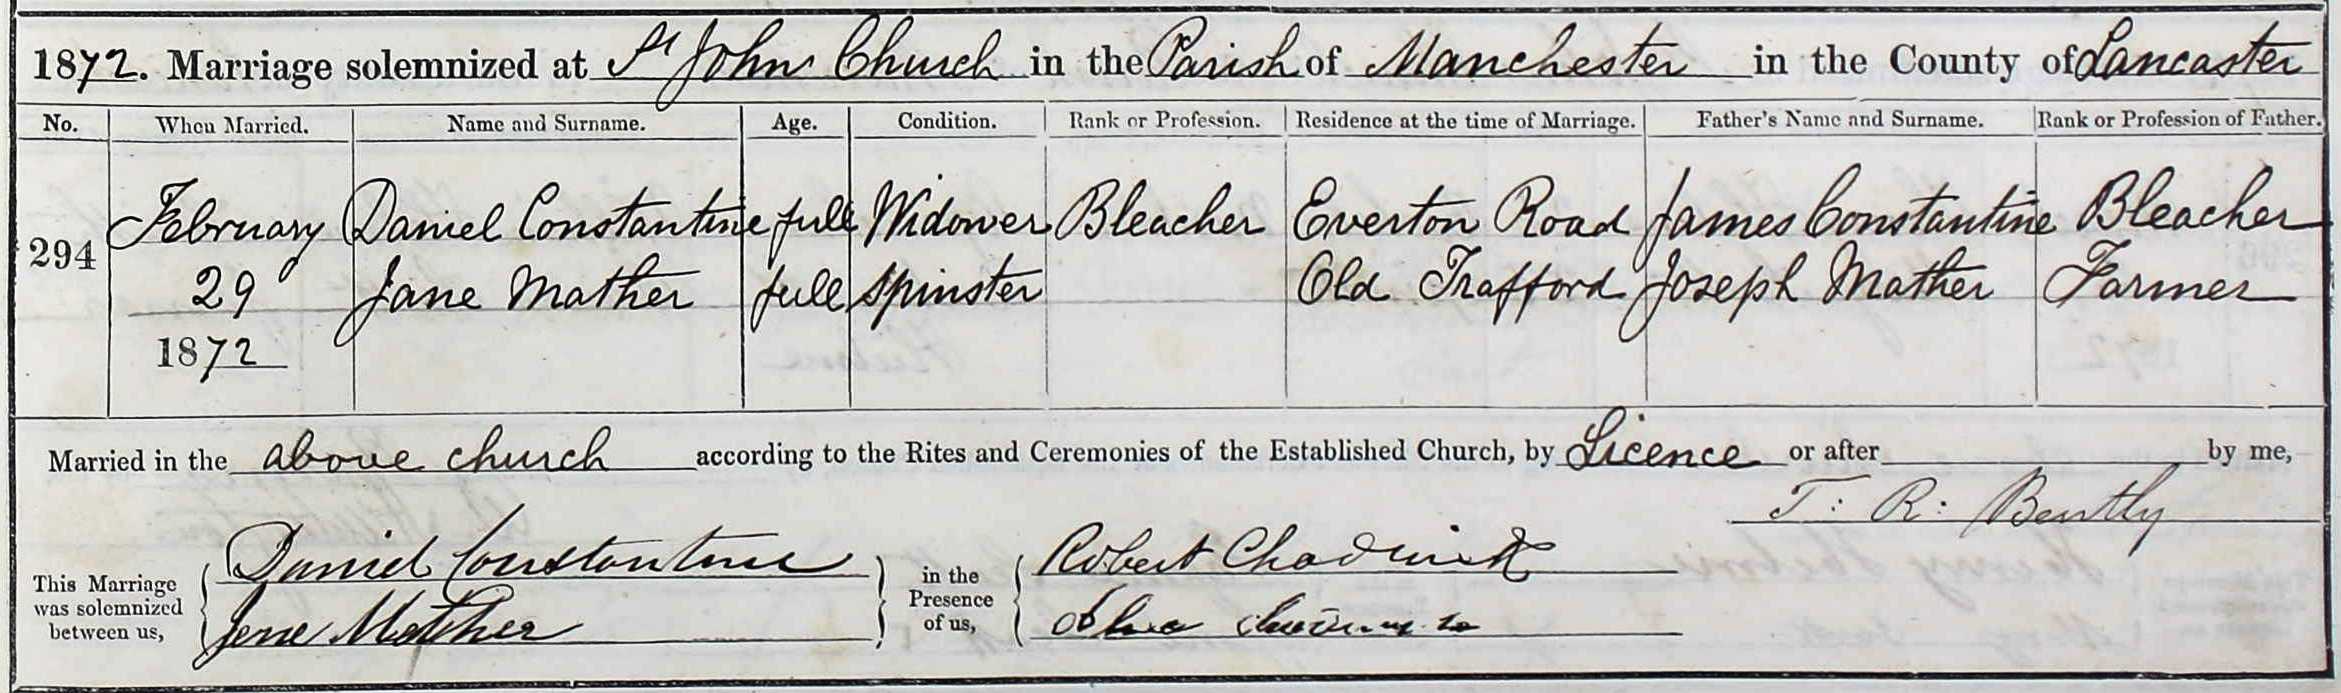 1872. Marriage solemnized at St John Church in the Parish of Manchester in the County of Lancaster
No. When Married. Name and Surname. Age. Condition. Rank or Profession. Residence at the time of Marriage. Father's Name and Surname. Rank or Profession of Father.
294 February Daniel Constantine full Widower Bleacher Everton Road James Constantine Bleacher
29 Jane Mather full Spinster Old Trafford Joseph Mather Farmer
1872
Married in the above church according to the Rites and Ceremonies of the Established Church, by Licence or after by me,
T: R: Bently
This Marriage was solemnized between us, Daniel Constantine in the Presence of us, Robert Chadwick
Jane Mather